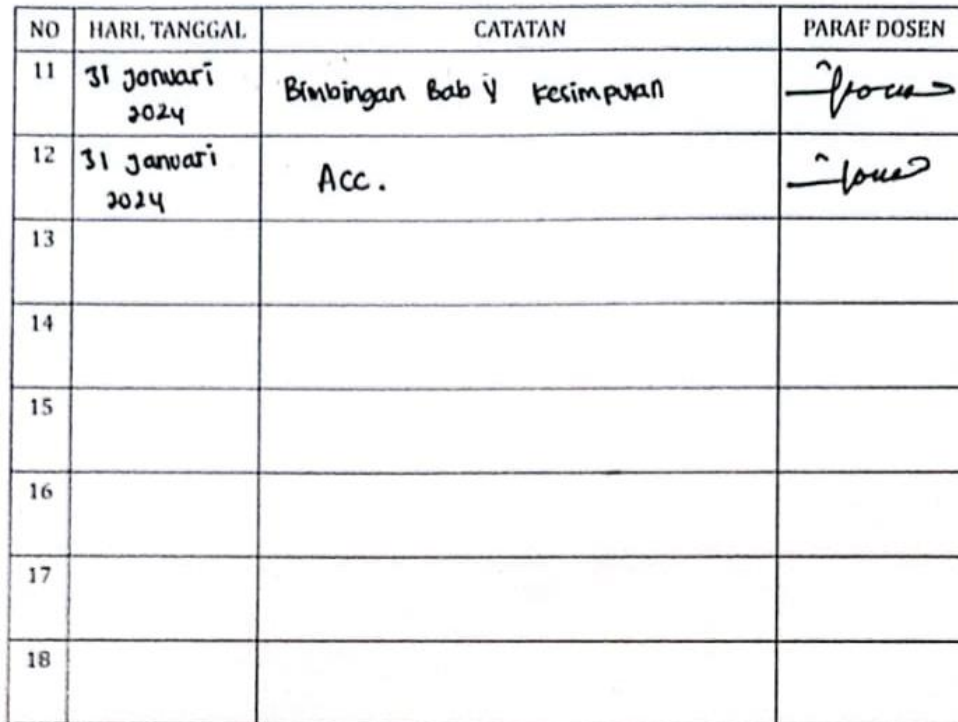 NO HARI, TANGGAL CATATAN PARAF DOSEN
11 31 Januari
2024 Bimbingan Bab V Kesimpulan
12 31 Januari
2024 Acc.
13
14
15
16
17
18